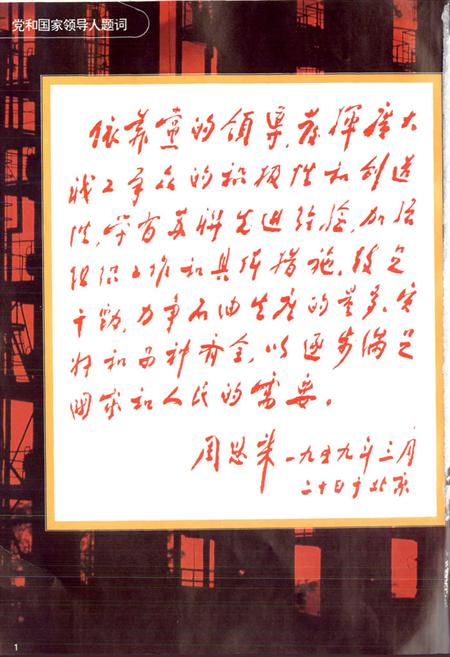 党和国家领导人题词
依靠黨的領導，发揮廣大
职工羣众的积极性和创造
性，学习苏联先进经验，加强
组织工作和具体措施，鼓足
干劲，力争石油生产的量多、质
好和品种齐全，以逐步满足
國家和人民的需要。
周恩来 一九五九年三月
二十日于北京
1